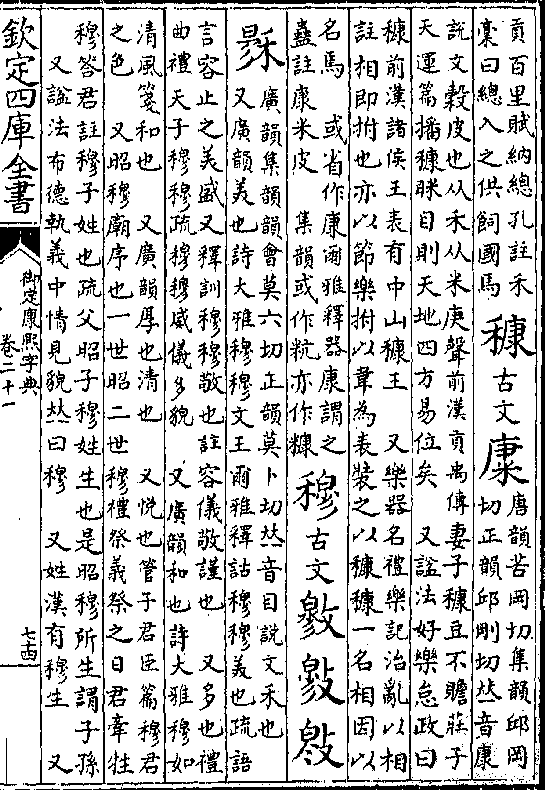 貢百里賦納總孔註禾
稾曰總入之供飼國馬
穅 古文
唐韻苦岡切集韻邱岡
切正韻邱剛切𠀤音康
說文穀皮也从禾从米庚聲前漢貢禹傳妻子穅豆不贍莊子
天運篇播穅眯目則天地四方易位矣 又諡法好樂怠政曰
穅前漢諸侯王表有中山穅王 又樂器名禮樂記治亂以相
註相即拊也亦以節樂拊以韋為表裝之以穅穅一名相因以
名焉 或省作康爾雅釋器康謂之
蠱註康米皮 集韻或作粇亦作糠
穆 古文
廣韻集韻韻會莫六切正韻莫卜切𠀤音目說文禾也
又廣韻美也詩大雅穆穆文王爾雅釋詁穆穆美也疏語
言容止之美盛又釋訓穆穆敬也註容儀敬謹也 又多也禮
曲禮天子穆穆疏穆穆威儀多貌 又廣韻和也詩大雅穆如
清風箋和也 又廣韻厚也清也 又悅也管子君臣篇穆君
之色 又昭穆廟序也一世昭二世穆禮祭義祭之日君牽牲
穆答君註穆子姓也疏父昭子穆姓生也是昭穆所生謂子孫
又諡法布德執義中情見貌𠀤曰穆 又姓漢有穆生 又
欽定四庫全書
御定康熙字典
卷二十一
七十四